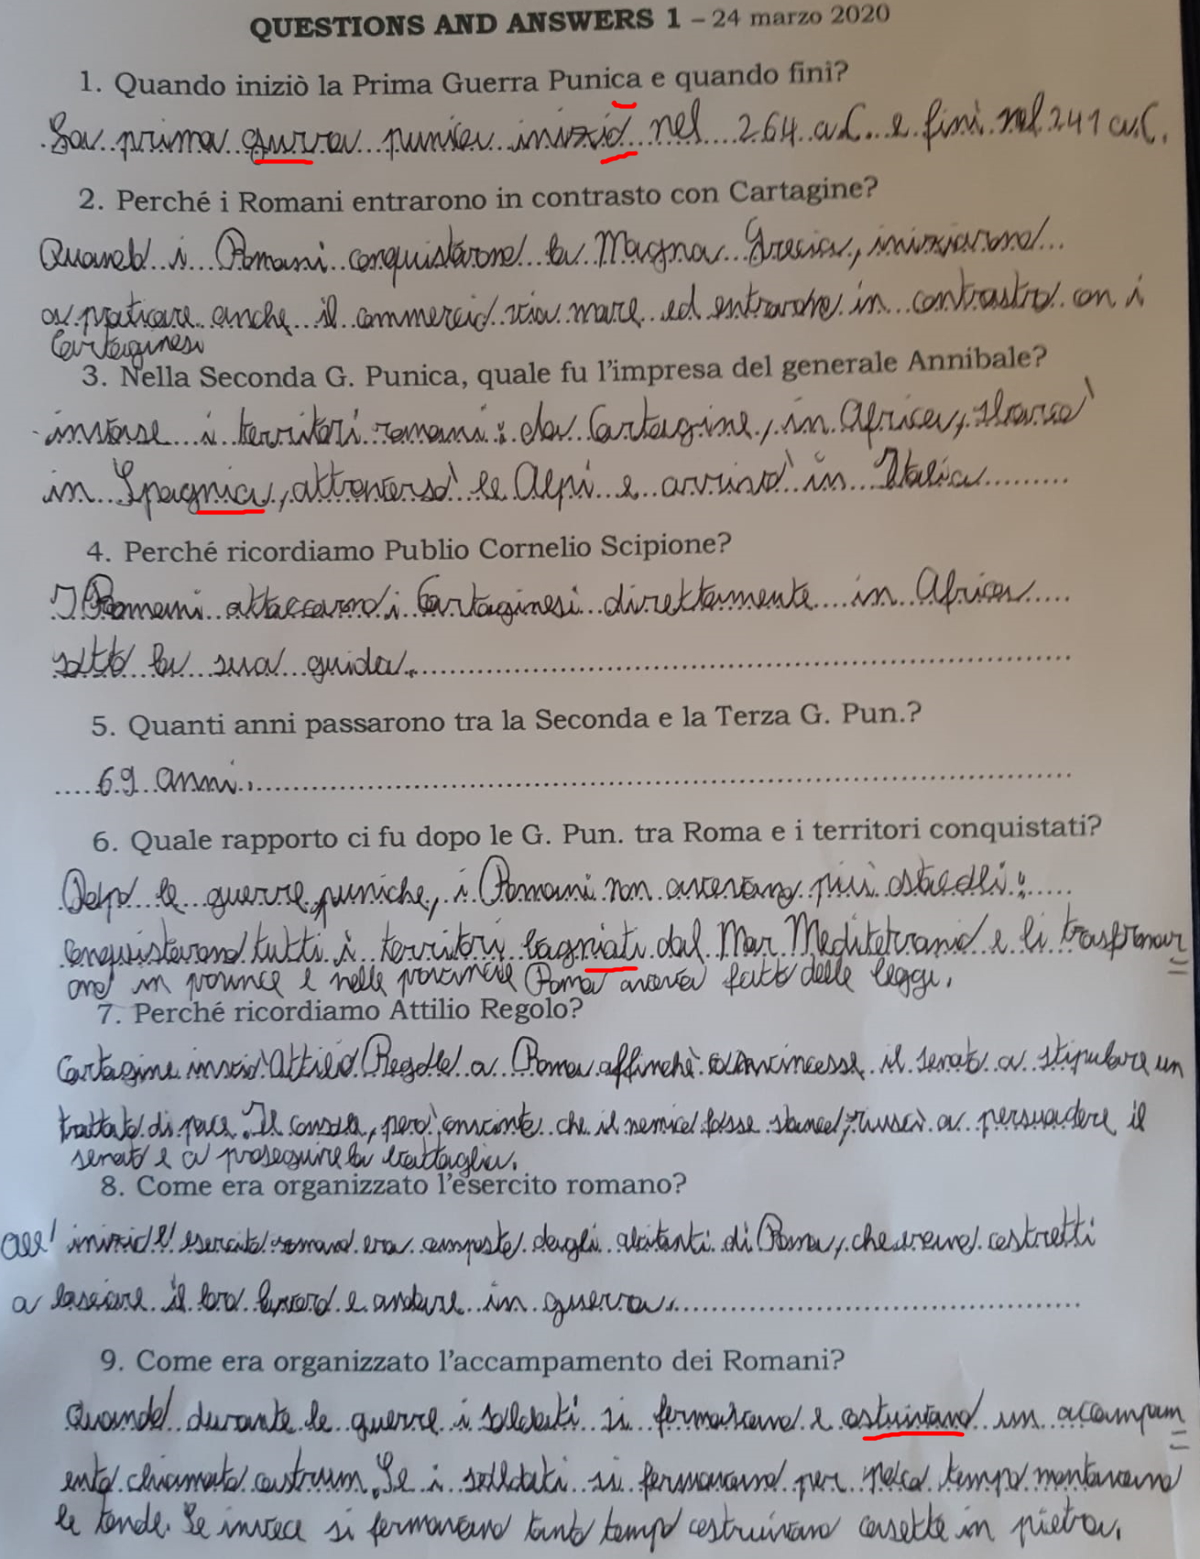 QUESTIONS AND ANSWERS 1 – 24 marzo 2020
1. Quando iniziò la Prima Guerra Punica e quando finì?
La prima gurra punica iniziò nel 264 a.C. e finì nel 241 a.C.
2. Perché i Romani entrarono in contrasto con Cartagine?
Quando i Romani conquistarono la Magna Grecia, iniziarono
a praticare anche il commercio via mare ed entrarono in contrasto con i
Cartaginesi
3. Nella Seconda G. Punica, quale fu l'impresa del generale Annibale?
invase i territori romani: da Cartagine, in Africa, sbarcò
in Spagnia, attraversò le Alpi e arrivò in Italia
4. Perché ricordiamo Publio Cornelio Scipione?
I Romani attaccarono i Cartaginesi direttamente in Africa
sotto la sua guida.
5. Quanti anni passarono tra la Seconda e la Terza G. Pun.?
69 anni.
6. Quale rapporto ci fu dopo le G. Pun. tra Roma e i territori conquistati?
Dopo le guerre puniche, i Romani non avevano più ostacoli:
conquistarono tutti i territori bagniati dal Mar Mediterranio e li trasformar
ono in province e nelle provincie Roma aveva fatto delle leggi.
7. Perché ricordiamo Attilio Regolo?
Cartagine inviò Attilio Regolo a Roma affinchè convincesse il senato a stipulare un
trattato di pace. Il console, però, convinto che il nemico fosse stanco, riuscì a persuadere il
senato e a proseguire la battaglia.
8. Come era organizzato l'esercito romano?
All'inizio l'esercito romano era composto dagli abitanti di Roma, che erano costretti
a lasciare il loro lavoro e andare in guerra.
9. Come era organizzato l'accampamento dei Romani?
Quando durante le guerre i soldati si fermavano e costruivano un accampam
ento chiamato castrum. Se i soldati si fermavano per poco tempo montavano
le tende. Se invece si fermavano tanto tempo costruivano casette in pietra.